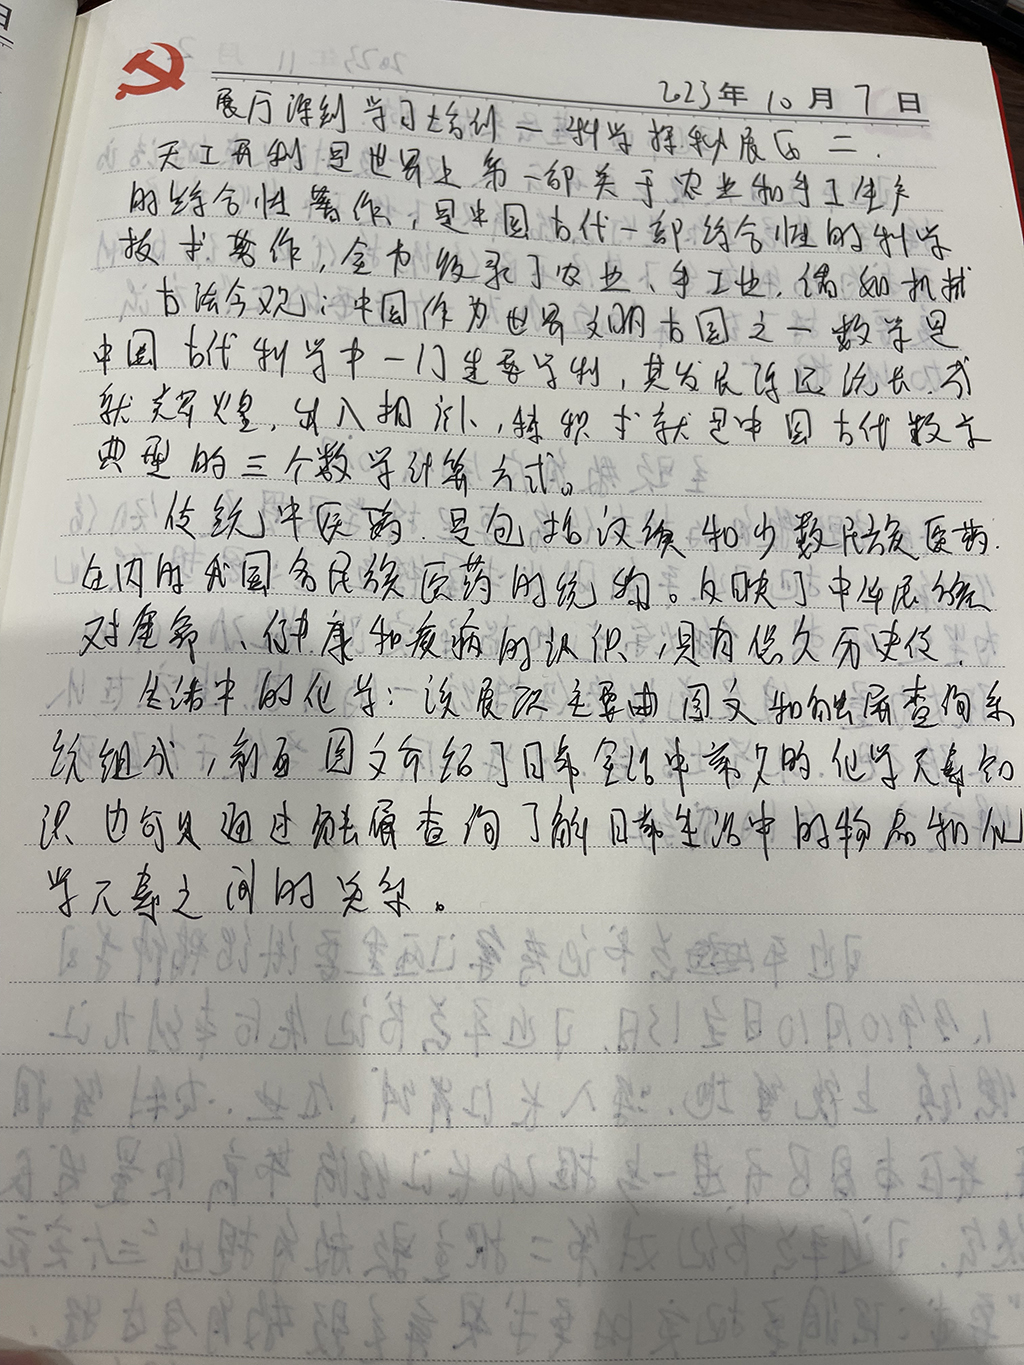 2023年10月7日
展厅深刻学习培训一科学探秘展区二.
天工开创是世界上第一部关于农业和手工生产
的综合性著作,是中国古代一部综合性的科学
技术著作,全书收录了农业、手工业,诸如机械
古法今观:中国作为世界文明古国之一数学是
中国古代科学中一门主要学科,其发展源远流长.成
就辉煌,出入相补,术就是中国古代数学
典型的三个数学计算方式。
传统中医药.是包括汉族和少数民族医药.
在内的我国各民族医药的统称。反映了中华民族
对生命、健康和疾病的认识,具有悠久历史传.
生活中的化学:该展项主要由图文和触屏查询系
统组成,前面图文介绍了日常生活中常久的化学元素知
识也可以通过触屏查询了解日常生活中的物品和化
学元素之间的关系。